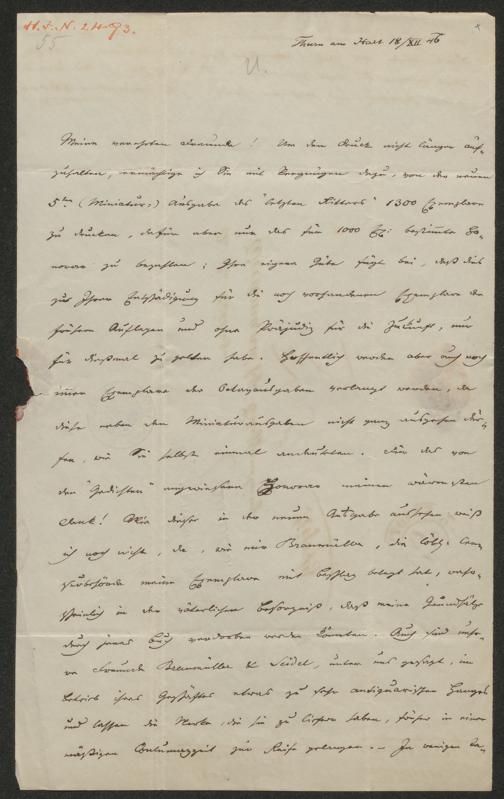 H.I.N. 2493.
55
Thurn am Hart 18/XII 46
Meine verehrten Freunde! Um den Druck nicht länger auf-
zuhalten, ermächtige ich Sie mit Vergnügen dazu, von der neuen
5ten (Miniatur-) Ausgabe des "letzten Ritters" 1300 Exemplare
zu drucken, dafür aber nur das für 1000 Ex: bestimmte Ho-
norar zu bezahlen; Ihre eigene Güte fügt bei, daß dieß
zur Ihrer Entschädigung für die noch vorhandenen Exemplare der
frühern Auflagen und ohne Präjudiz für die Zukunft, nur
für dießmal zu gelten habe. Hoffentlich werden aber auch noch
immer Exemplare der Octavausgaben verlangt werden, da
diese neben den Miniaturausgaben nicht ganz ausgehen dür-
fen, wie Sie selbst einmal andeuteten. Für das von
den "Gedichten" angewiesene Honorar meinen wärmsten
Dank! Wie dieser in der neuen Ausgabe aussehen weiß
ich noch nicht, da, wie mir Braumüller, die löbl. Cen-
surbehörde meine Exemplare mit Beschlag belegt hat, wahr-
scheinlich in der väterlichen Besorgniß, daß meine Grundsätze
durch jenes Buch verdorben werden könnten. Auch sind unse-
re Freunde Braumüller & Seidel, unter uns gesagt, im
Betrieb ihres Geschäftes etwas zu sehr antiquarischen Hanges
und lassen die Werke, die sie zu liefern haben, früher in einer
mäßigen Contumazzeit zur Reife gelangen. – In wenigen Ta-